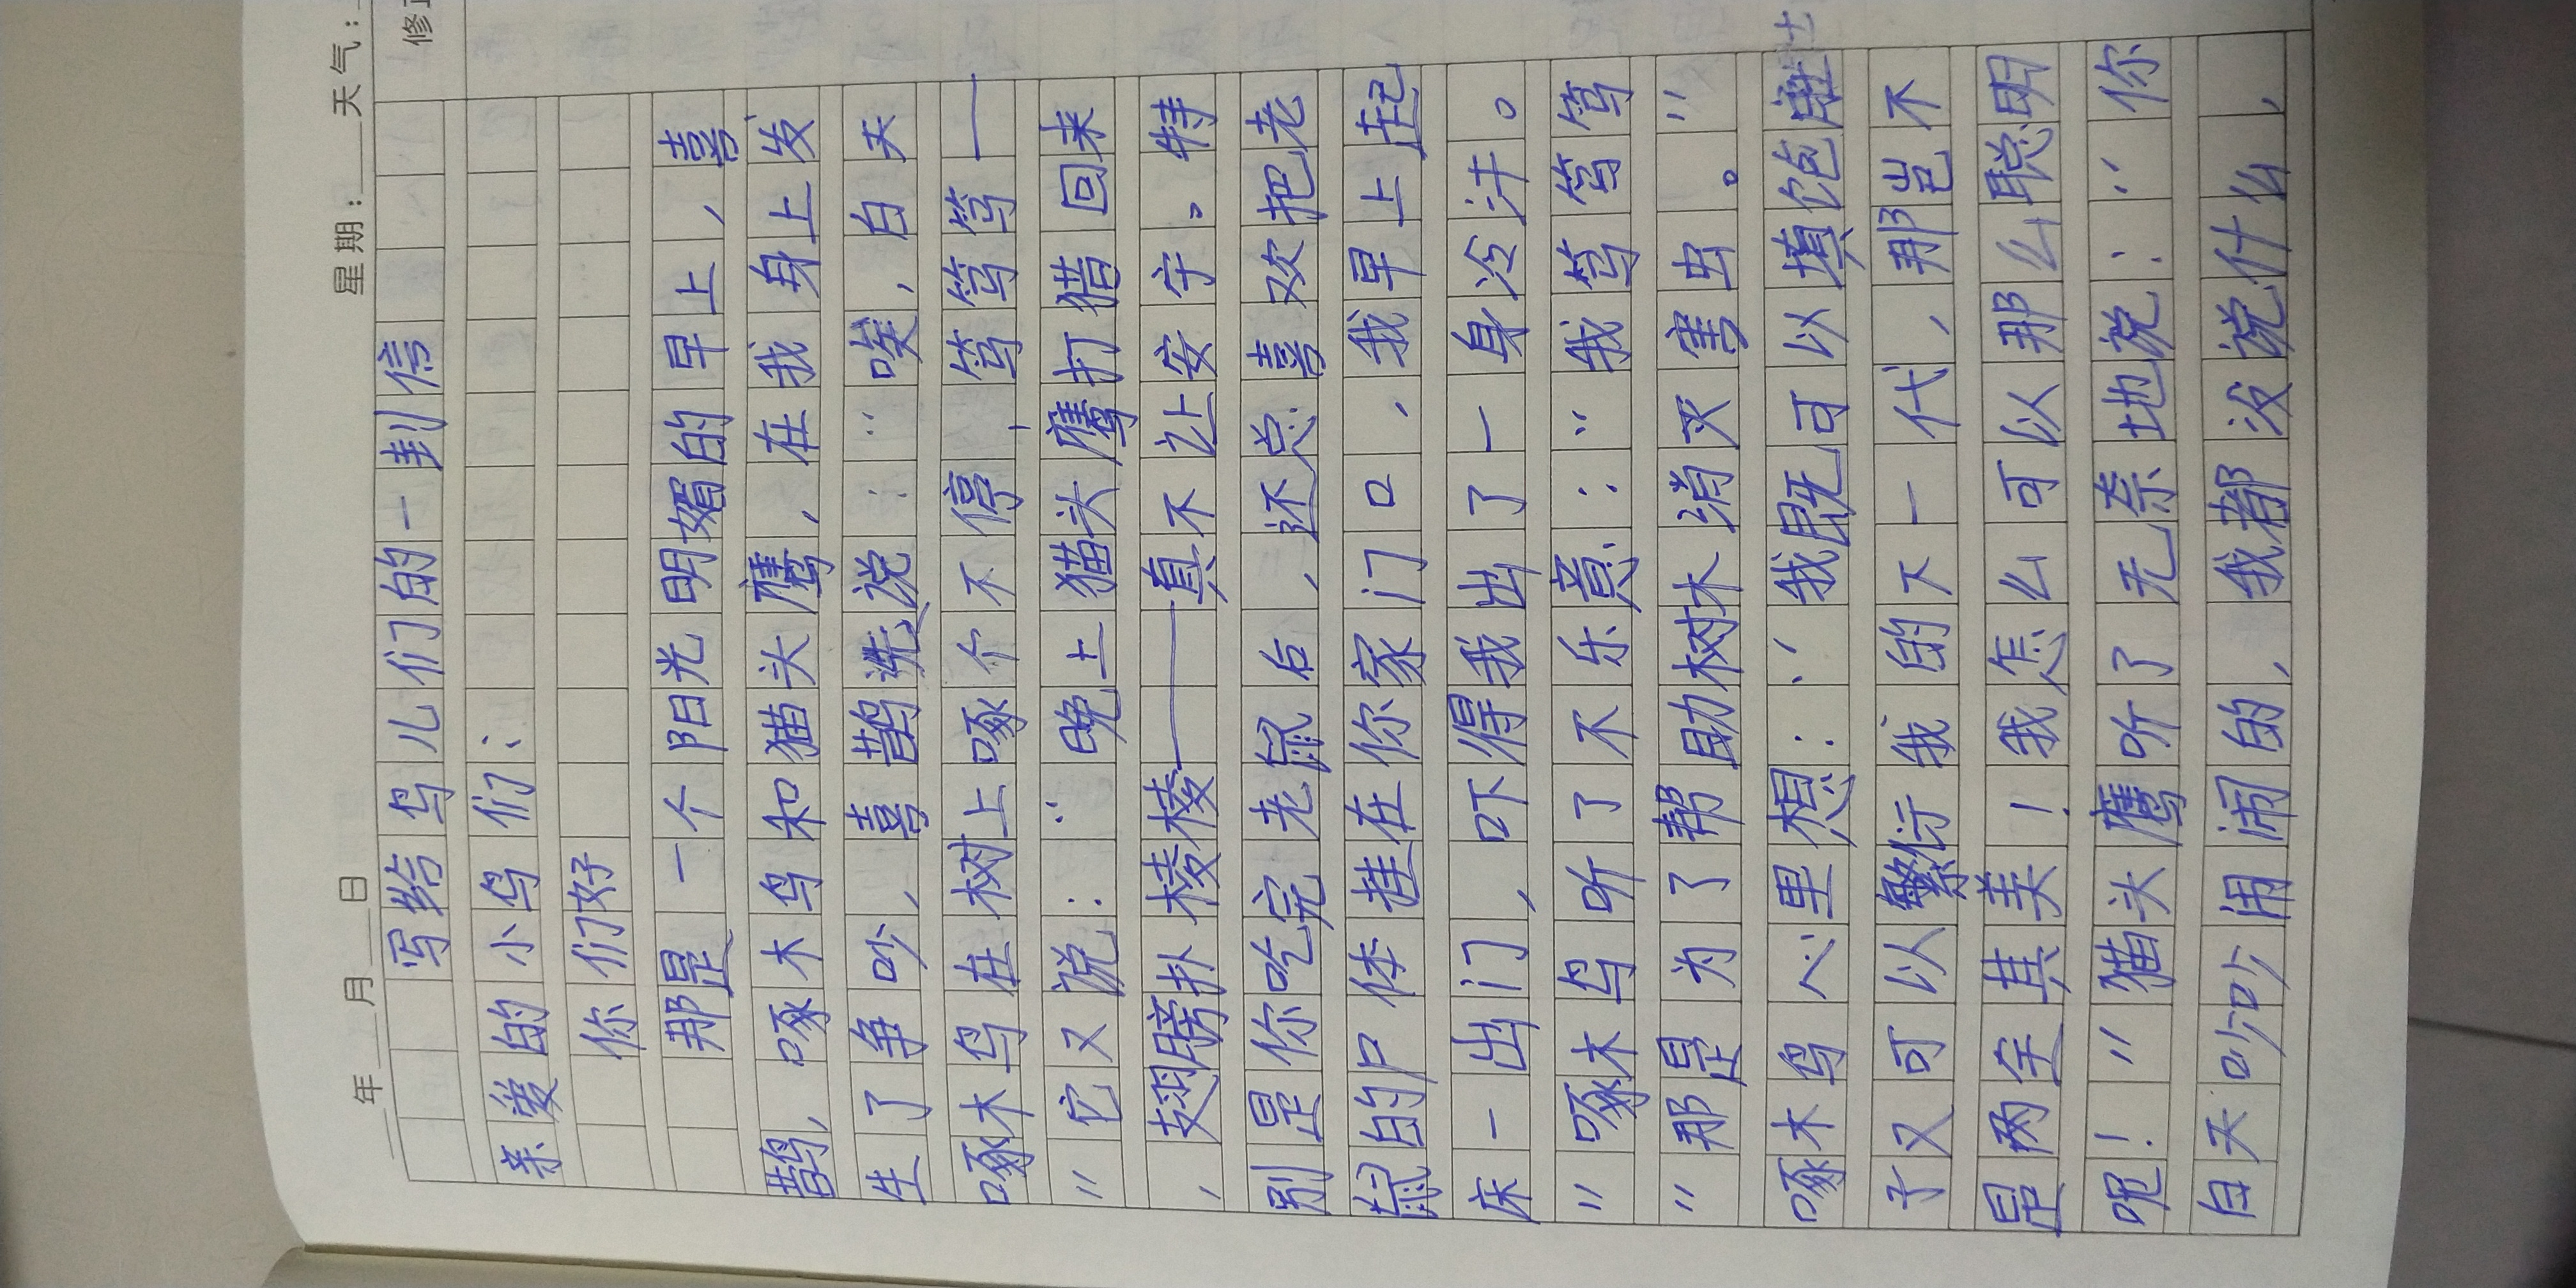 年 月 日 星期： 天气：
修
写给鸟儿们的一封信
亲爱的小鸟们：
你们好
那是一个阳光明媚的早上，喜
鹊，啄木鸟和猫头鹰，在我身上发
生了争吵，喜鹊说：“唉，白天
啄木鸟在树上啄个不停，笃笃笃—
”它又说：“晚上猫头鹰打猎回来
，翅膀扑棱棱——真不让安宁。特
别是你吃完老鼠后，还总喜欢把老
鼠的尸体挂在你家门口，我早上起
床一出门，吓得我出了一身冷汗。
”啄木鸟听了不乐意：“我笃笃笃
”那是为了帮助树木消灭害虫。”
啄木鸟心里想：“我既可以填饱肚
子又可以繁衍我的下一代，那岂不
是两全其美！我怎么可以那么聪明
呢！”猫头鹰听了无奈地说：“你
白天吵吵闹闹的，我都没说什么，